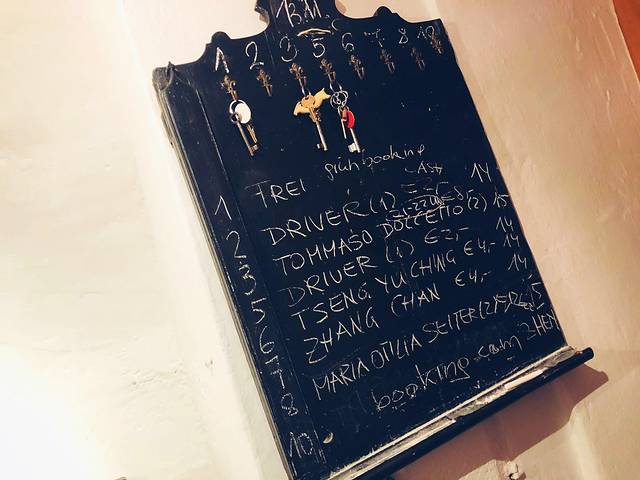 B.M.
1 2 3 5 6 7 8 10
1 FREI booking
2 DRIVER (1) 14
3 TOMMASO DOLCETTO (2) 15
5 DRIVER (1) €2,- 14
6 TSENG YU CHING €4,- 14
7 ZHANG CHAN €4,- 14
8 MARIA OTILIA SEITER (2) 15
10 booking.com ZHEN